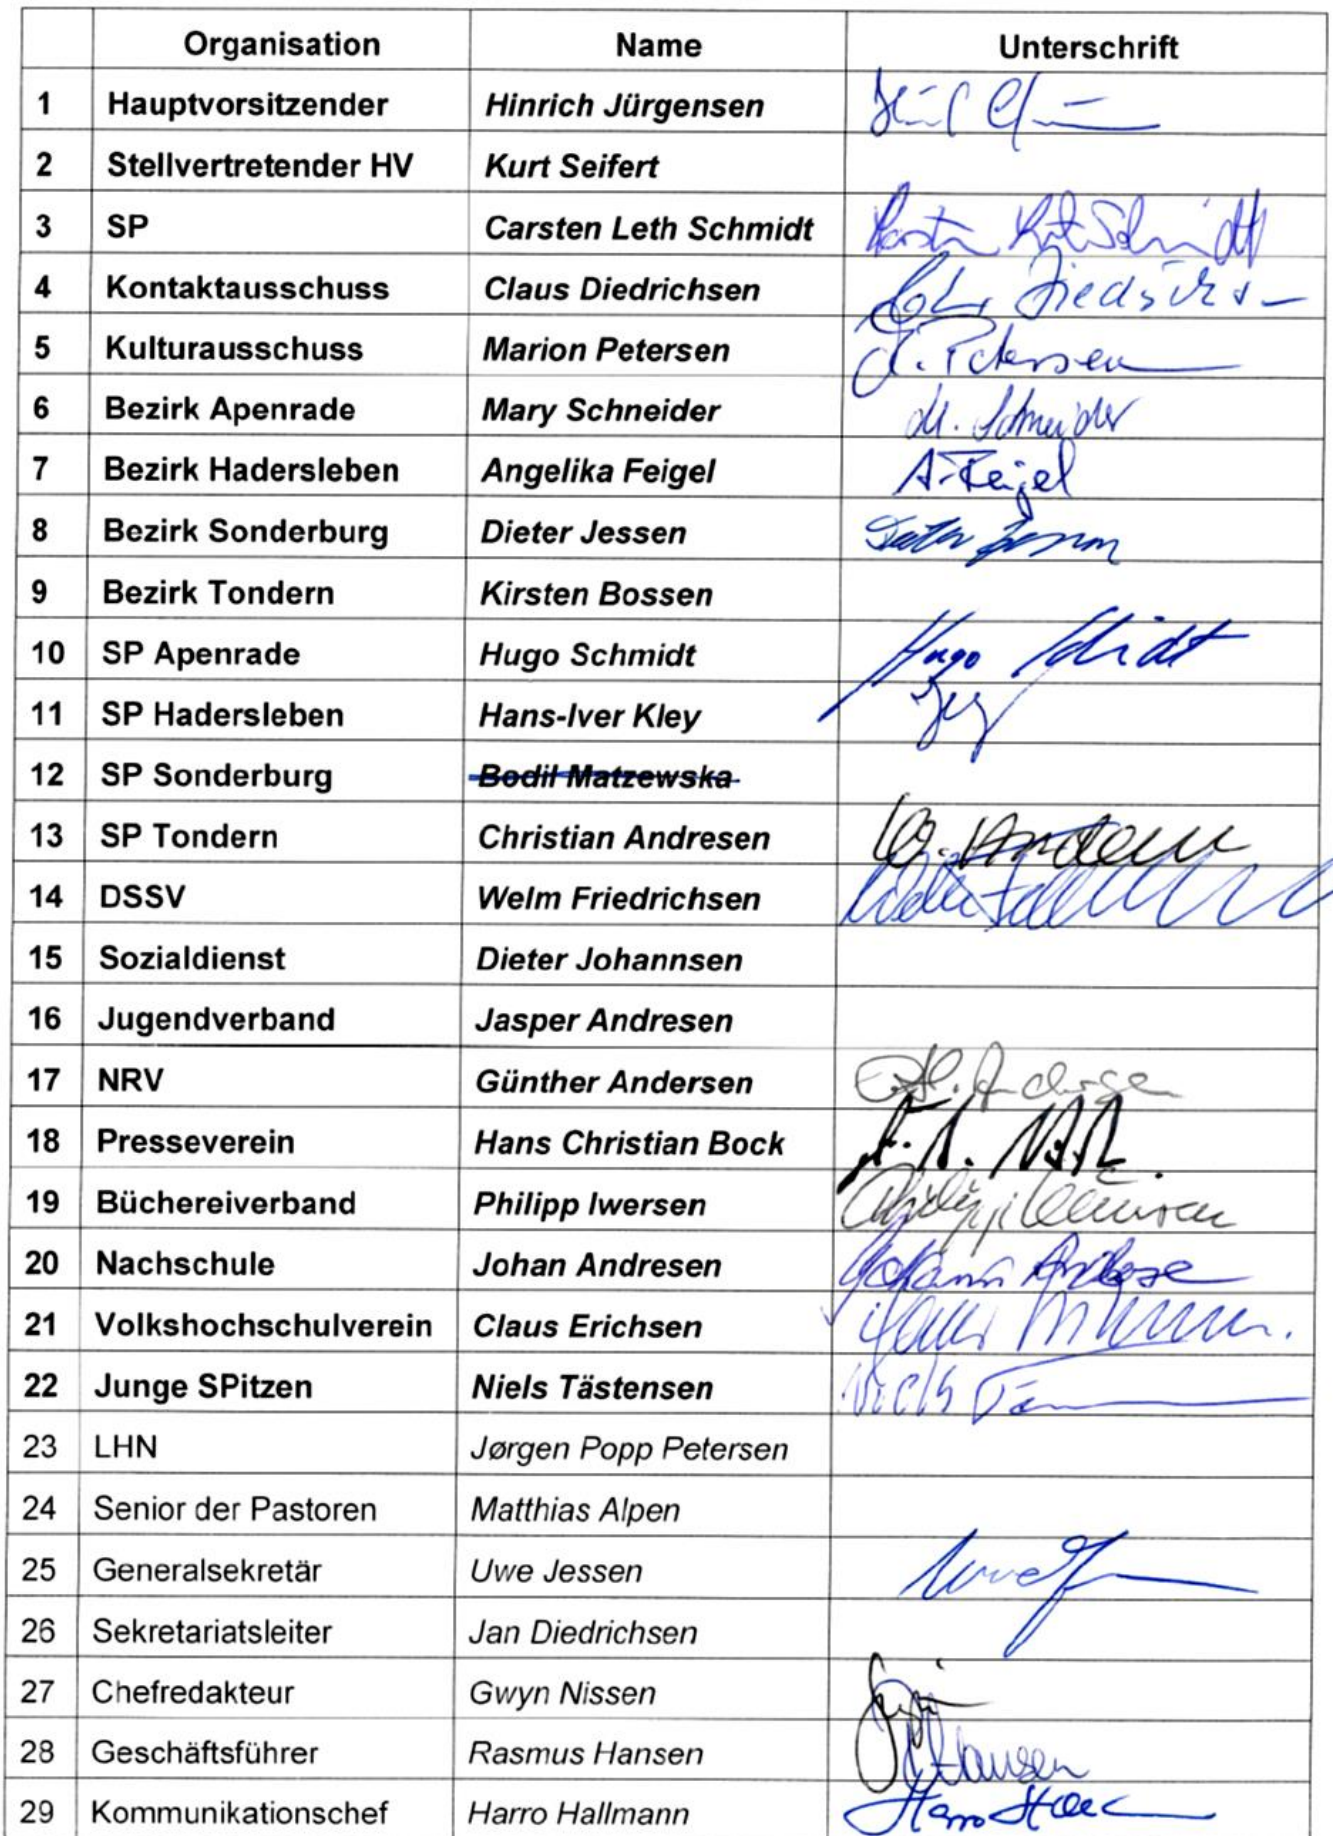 Organisation Name Unterschrift
1 Hauptvorsitzender Hinrich Jürgensen
2 Stellvertretender HV Kurt Seifert
3 SP Carsten Leth Schmidt Schmidt
4 Kontaktausschuss Claus Diedrichsen
5 Kulturausschuss Marion Petersen Petersen
6 Bezirk Apenrade Mary Schneider M. Schneider
7 Bezirk Hadersleben Angelika Feigel A. Feigel
8 Bezirk Sonderburg Dieter Jessen Dieter Jessen
9 Bezirk Tondern Kirsten Bossen
10 SP Apenrade Hugo Schmidt Hugo Schmidt
11 SP Hadersleben Hans-Iver Kley
12 SP Sonderburg Bodil Matzewska
13 SP Tondern Christian Andresen
14 DSSV Welm Friedrichsen
15 Sozialdienst Dieter Johannsen
16 Jugendverband Jasper Andresen
17 NRV Günther Andersen
18 Presseverein Hans Christian Bock
19 Büchereiverband Philipp Iwersen Philipp Iwersen
20 Nachschule Johan Andresen
21 Volkshochschulverein Claus Erichsen Claus
22 Junge SPitzen Niels Tästensen Niels
23 LHN Jørgen Popp Petersen
24 Senior der Pastoren Matthias Alpen
25 Generalsekretär Uwe Jessen Uwe
26 Sekretariatsleiter Jan Diedrichsen
27 Chefredakteur Gwyn Nissen
28 Geschäftsführer Rasmus Hansen Hansen
29 Kommunikationschef Harro Hallmann Harro